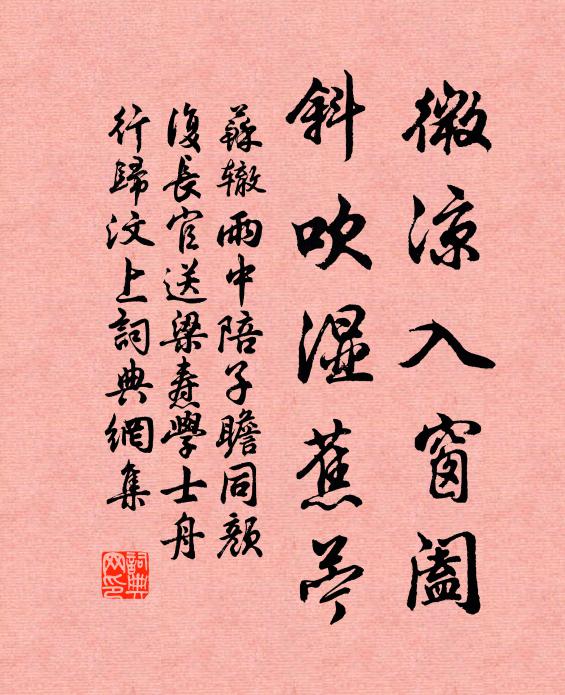 微涼入窗闔
斜吹湿蕉苧
蘇轍雨中陪子瞻同顏
復長官送梁燾學士舟
行歸汶上詞典網集
詞典网印